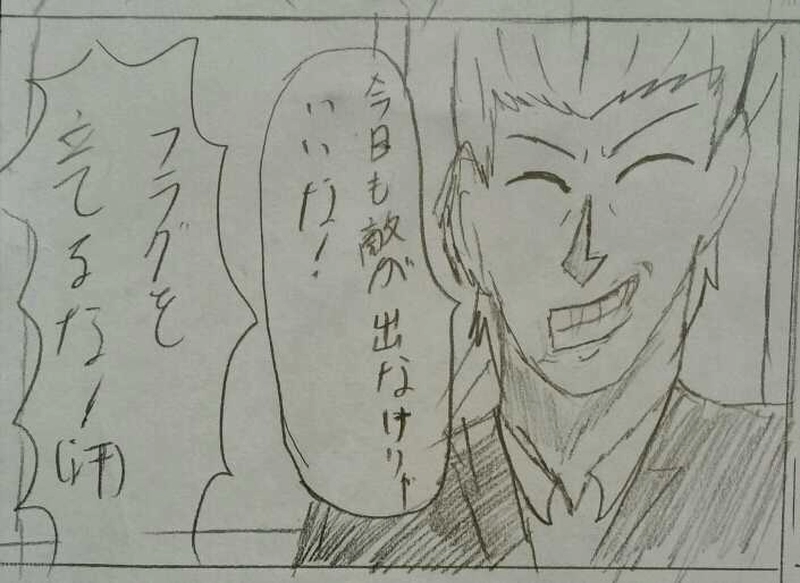 今日も敵が出なけりゃ
いいな!
フラグを
立てるな!(汗)